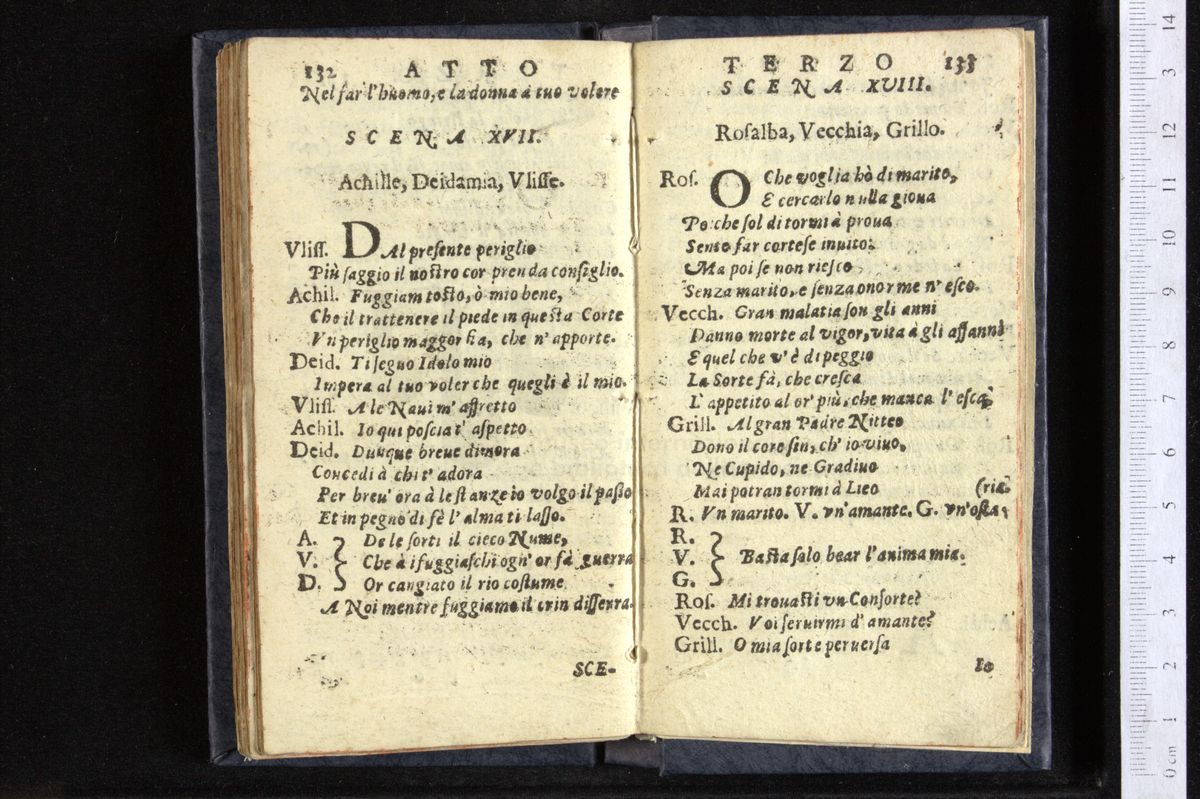 132 ATTO
Nel far l'huomo, e la donna à tuo volere
SCENA XVII.
Achille, Deidamia, Vlisse.
Vliſſ. DAl preſente periglio
Più ſaggio il noſtro cor prenda conſiglio.
Achil. Fuggiam toſto, ò mio bene,
Che il trattenere il piede in queſta Corte
Vn periglio maggor fia, che n' apporte.
Deid. Ti ſeguo Idolo mio
Impera al tuo voler che quegli è il mio.
Vliſſ. A le Naui m' affretto
Achil. Io qui poſcia t' aſpetto
Deid. Dunque breue dimora
Concedi à chi t' adora
Per breu' ora à le ſtanze io volgo il paſſo
Et in pegno di fè l' alma ti laſſo.
A. De le ſorti il cieco Nume,
V. Che à i fuggiaſchi ogn' or fà guerra
D. Or cangiato il rio coſtume
A Noi mentre fuggiamo il crin diſſerra.
SCE-
TERZO 133
SCENA XVIII.
Roſalba, Vecchia, Grillo.
Roſ. O Che voglia hò di marito,
E cercarlo nulla gioua
Poche ſol di tormi à proua
Sento far corteſe inuito:
Ma poi ſe non rieſco
Senza marito, e ſenza onor me n' eſco.
Vecch. Gran malatia ſon gli anni
Danno morte al vigor, vita à gli affanni
E quel che v' è di peggio
La Sorte fà, che creſca
L' appetito al or' più, che manca l' eſca
Grill. Al gran Padre Nitteo
Dono il core ſin, ch' io viuo,
Ne Cupido, ne Gradiuo
Mai potran tormi à Lieo (ria.
R. Vn marito. V. vn' amante. G. vn' oſta,
R.
V. Baſta ſolo bear l'anima mia.
G.
Roſ. Mi trouaſti vn Conſorte?
Vecch. Voi ſeruirmi d' amante?
Grill. O mia ſorte peruerſa
Io
0 cm 1 2 3 4 5 6 7 8 9 10 11 12 13 14